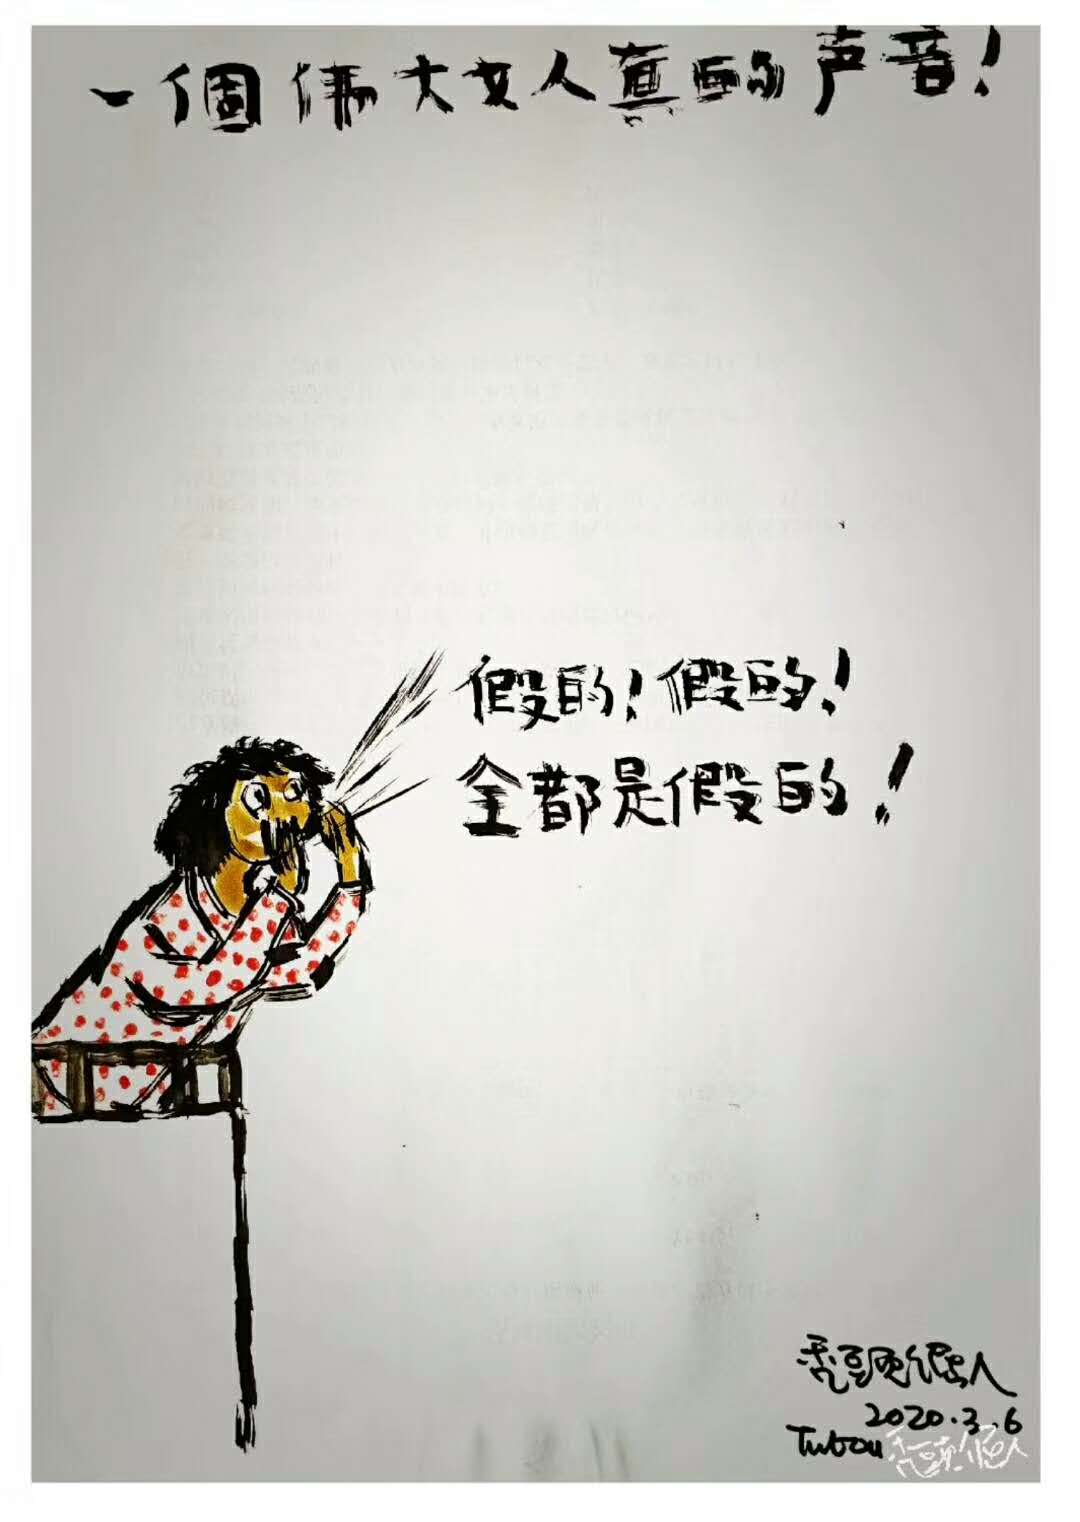 一個伟大女人真的声音！
假的！假的！
全都是假的！
秃头倔人
2020.3.6
Tutou
秃头倔人